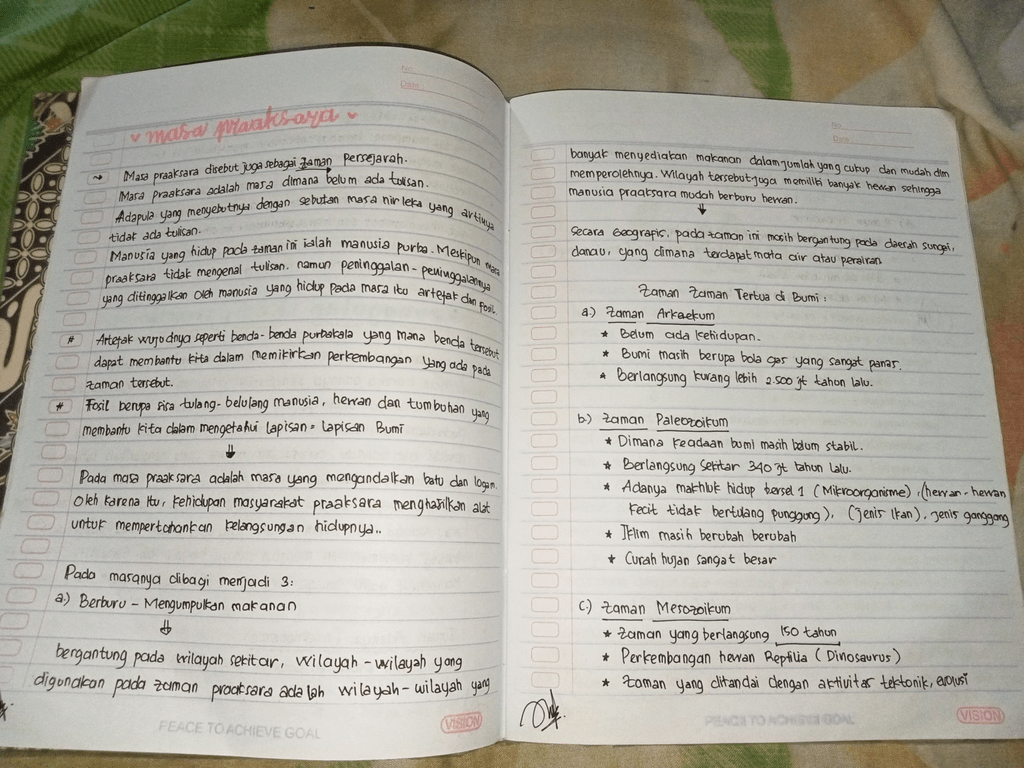 No.
Date :
masa praaksara
Masa praaksara disebut juga sebagai zaman persejarah.
Masa praaksara adalah masa dimana belum ada tulisan.
Adapula yang menyebutnya dengan sebutan masa nirleka yang artinya
tidak ada tulisan.
Manusia yang hidup pada zaman ini ialah manusia purba. Meskipun masa
praaksara tidak mengenal tulisan. namun peninggalan-peninggalannya
yang ditinggalkan oleh manusia yang hidup pada masa itu artefak dan fosil.
# Artefak wujudnya seperti benda-benda purbakala yang mana benda tersebut
dapat membantu kita dalam memikirkan perkembangan yang ada pada
zaman tersebut.
# Fosil berupa sisa tulang-belulang manusia, hewan dan tumbuhan yang
membantu kita dalam mengetahui lapisan = lapisan Bumi
↓
Pada masa praaksara adalah masa yang mengandalkan batu dan logam.
Oleh karena itu, kehidupan masyarakat praaksara menghasilkan alat
untuk mempertahankan kelangsungan hidupnya..
Pada masanya dibagi menjadi 3:
a.) Berburu - Mengumpulkan makanan
↓
bergantung pada wilayah sekitar, wilayah-wilayah yang
digunakan pada zaman praaksara adalah wilayah-wilayah yang
PEACE TO ACHIEVE GOAL
VISION
No.
Date :
banyak menyediakan makanan dalam jumlah yang cukup dan mudah dlm
memperolehnya. Wilayah tersebut juga memiliki banyak hewan sehingga
manusia praaksara mudah berburu hewan.
↓
Secara Geografis, pada zaman ini masih bergantung pada daerah sungai,
danau, yang dimana terdapat mata air atau perairan
Zaman Zaman Tertua di Bumi :
a.) Zaman Arkaekum
* Belum ada kehidupan.
* Bumi masih berupa bola gas yang sangat panas.
* Berlangsung kurang lebih 2.500 jt tahun lalu.
b.) Zaman Paleozoikum
* Dimana keadaan bumi masih belum stabil.
* Berlangsung sekitar 340 jt tahun lalu.
* Adanya makhluk hidup bersel 1 (Mikroorganisme), (hewan-hewan
kecil tidak bertulang punggung), (jenis ikan), jenis ganggang
* Iklim masih berubah berubah
* Curah hujan sangat besar
c.) Zaman Mesozoikum
* Zaman yang berlangsung 150 tahun
* Perkembangan hewan Reptilia (Dinosaurus)
* Zaman yang ditandai dengan aktivitas tektonik, evolusi
PEACE TO ACHIEVE GOAL
VISION